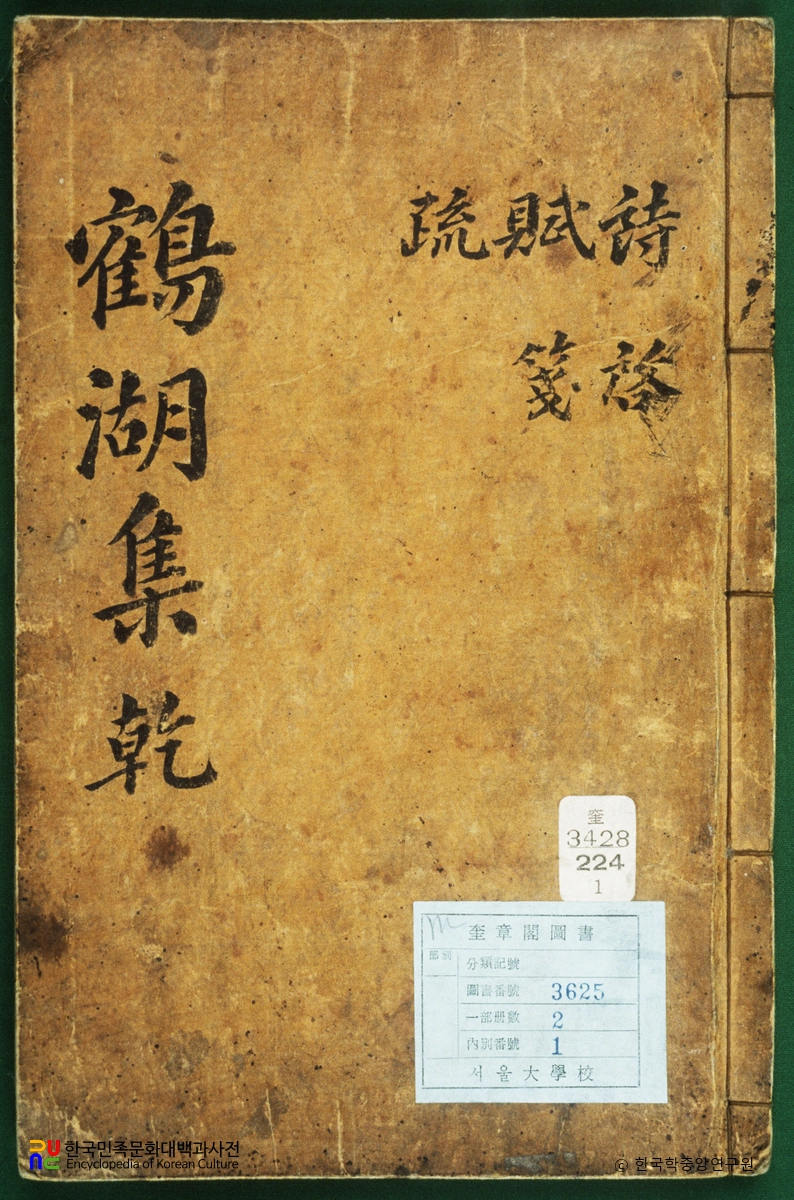 鶴湖集 乾
詩 賦 疏
啓 箋
奎
3428
224
1
奎章閣圖書
部別
分類記號
圖書番號 3625
一部册數 2
內別番號 1
서울大學校
한국민족문화대백과사전
Encyclopedia of Korean Culture
© 한국학중앙연구원